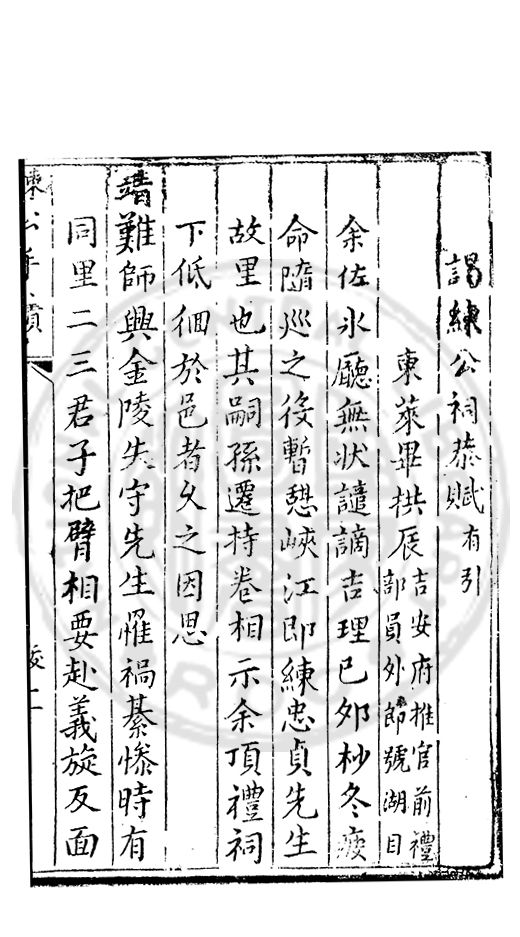 謁練公祠恭賦有引
東萊畢拱辰吉安府推官前禮部員外郎號湖目
余佐氷廳無狀譴謫吉理已夘杪冬
命隨巡之役暫憩峽江即練忠貞先生
故里也其嗣孫遷持卷相示余頂禮祠
下低徊於邑者久之因思
靖難師興金陵失守先生罹禍綦慘時有
同里二三君子把臂相要赴義旋反面
練公手